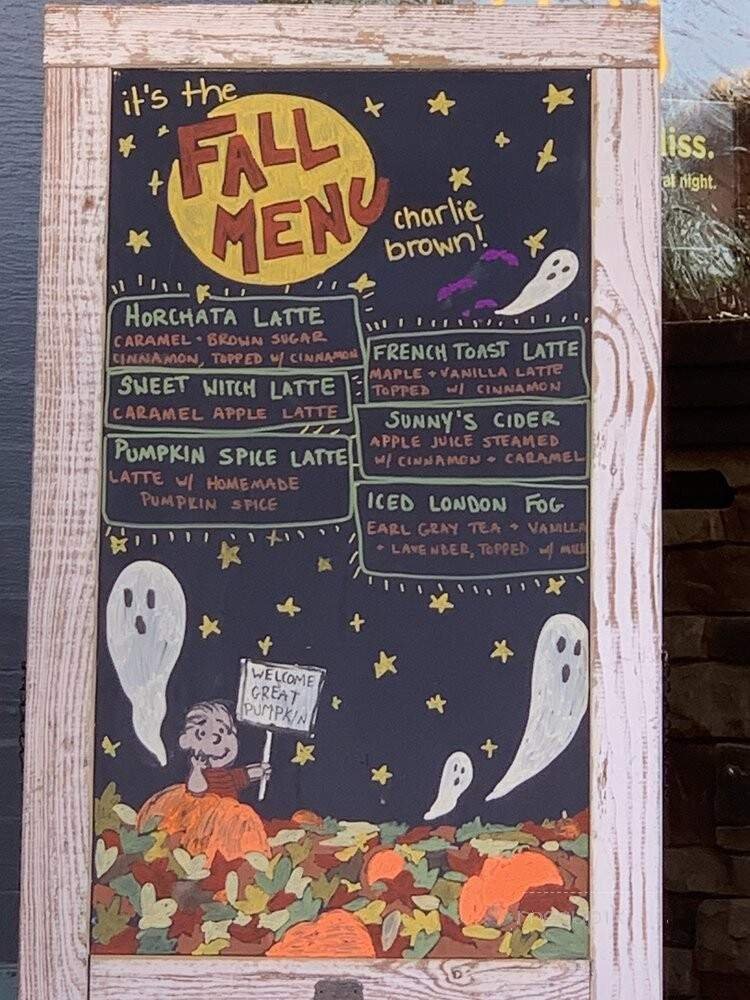 it's the
FALL
MENU
charlie
brown!
HORCHATA LATTE
CARAMEL + BROWN SUGAR
CINNAMON, TOPPED W/ CINNAMON
SWEET WITCH LATTE
CARAMEL APPLE LATTE
PUMPKIN SPICE LATTE
LATTE W/ HOMEMADE
PUMPKIN SPICE
FRENCH TOAST LATTE
MAPLE + VANILLA LATTE
TOPPED W/ CINNAMON
SUNNY'S CIDER
APPLE JUICE STEAMED
W/ CINNAMON + CARAMEL
ICED LONDON FOG
EARL GRAY TEA + VANILLA
+ LAVENDER, TOPPED W/ MILK
WELCOME
GREAT
PUMPKIN
liss.
al night.